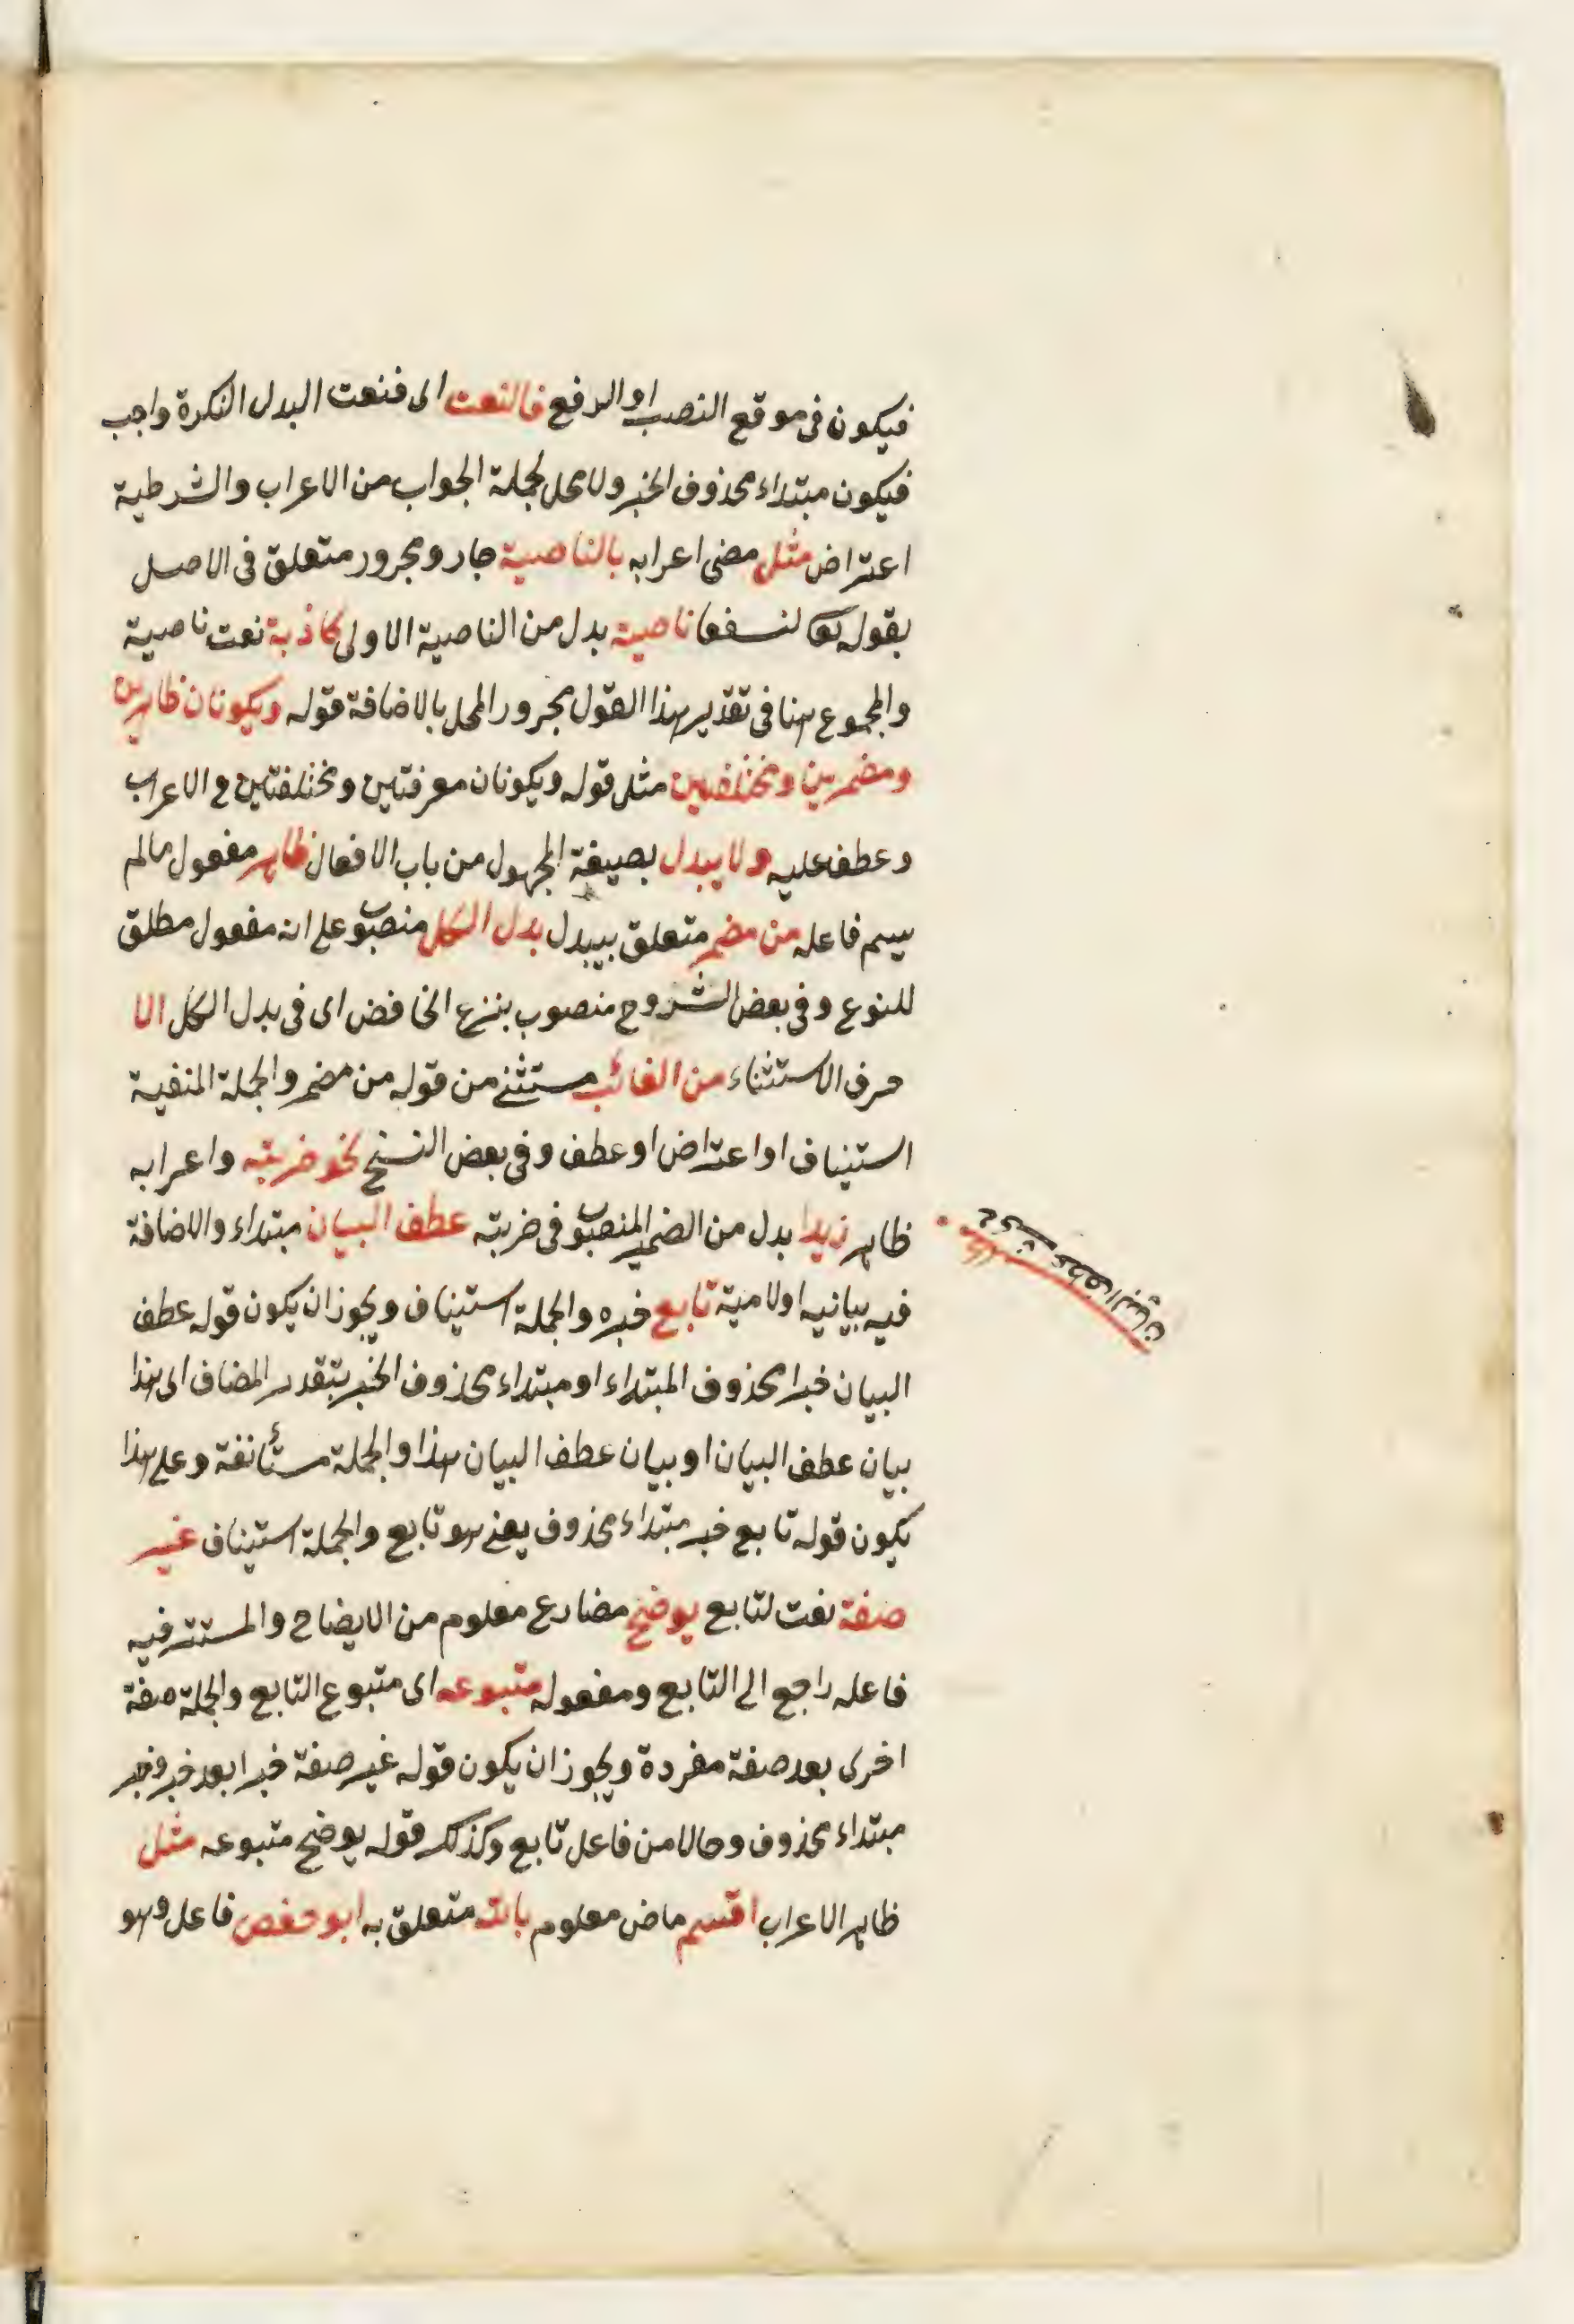 فيكون فى موقع النصب او الرفع فالنعت اى فنعت البدل النكرة واجب
فيكون مبتداء محذوف الخبر ولا محل لجملة الجواب من الاعراب والشرطية
اعتراض مثل مضى اعرابه بالناصية جار ومجرور متعلق فى الاصل
بقوله تعا لنسفعا ناصية بدل من الناصية الاولى كاذبة نعت ناصية
والمجموع هنا فى تقدير هذا القول مجرور المحل بالاضافة قوله ويكونان ظاهرين
ومضمرين ومختلفين مثل قوله ويكونان معرفتين ومختلفتين فى الاعراب
وعطف عليه ولا يبدل بصيغة المجهول من باب الافعال ظاهر مفعول مالم
يسم فاعله من مضمر متعلق بيبدل بدل الكل منصوب على انه مفعول مطلق
للنوع وفى بعض الشروح منصوب بنزع الخافض اى فى بدل الكل الا
حرف الاستثناء من الغائب مستثنے من قوله من مضمر والجملة المنفية
استيناف او اعتراض او عطف وفى بعض النسخ نحو ضربته واعرابه
ظاهر زيدا بدل من الضمير المنصوب فى ضربته عطف البيان مبتداء والاضافة
فيه بيانيه او لامية تابع خبره والجملة استيناف ويجوز ان يكون قوله عطف
البيان خبرا محذوف المبتداء او مبتداء محذوف الخبر بتقدير المضاف اى هذا
بيان عطف البيان او بيان عطف البيان هذا والجملة مستأنفة وعلى هذا
يكون قوله تابع خبر مبتداء محذوف يعنے هو تابع والجملة استيناف غير
صفة نعت لتابع يوضح مضارع معلوم من الايضاح والمستتر فيه
فاعله راجع الى التابع ومفعوله متبوعه اى متبوع التابع والجملة صفة
اخرى بعد صفة مفردة ويجوز ان يكون قوله غير صفة خبرا بعد خبر وخبر
مبتداء محذوف وحالا من فاعل تابع وكذلك قوله يوضح متبوعه مثل
ظاهر الاعراب اقسم ماض معلوم بالله متعلق به ابو حفص فاعل وهو